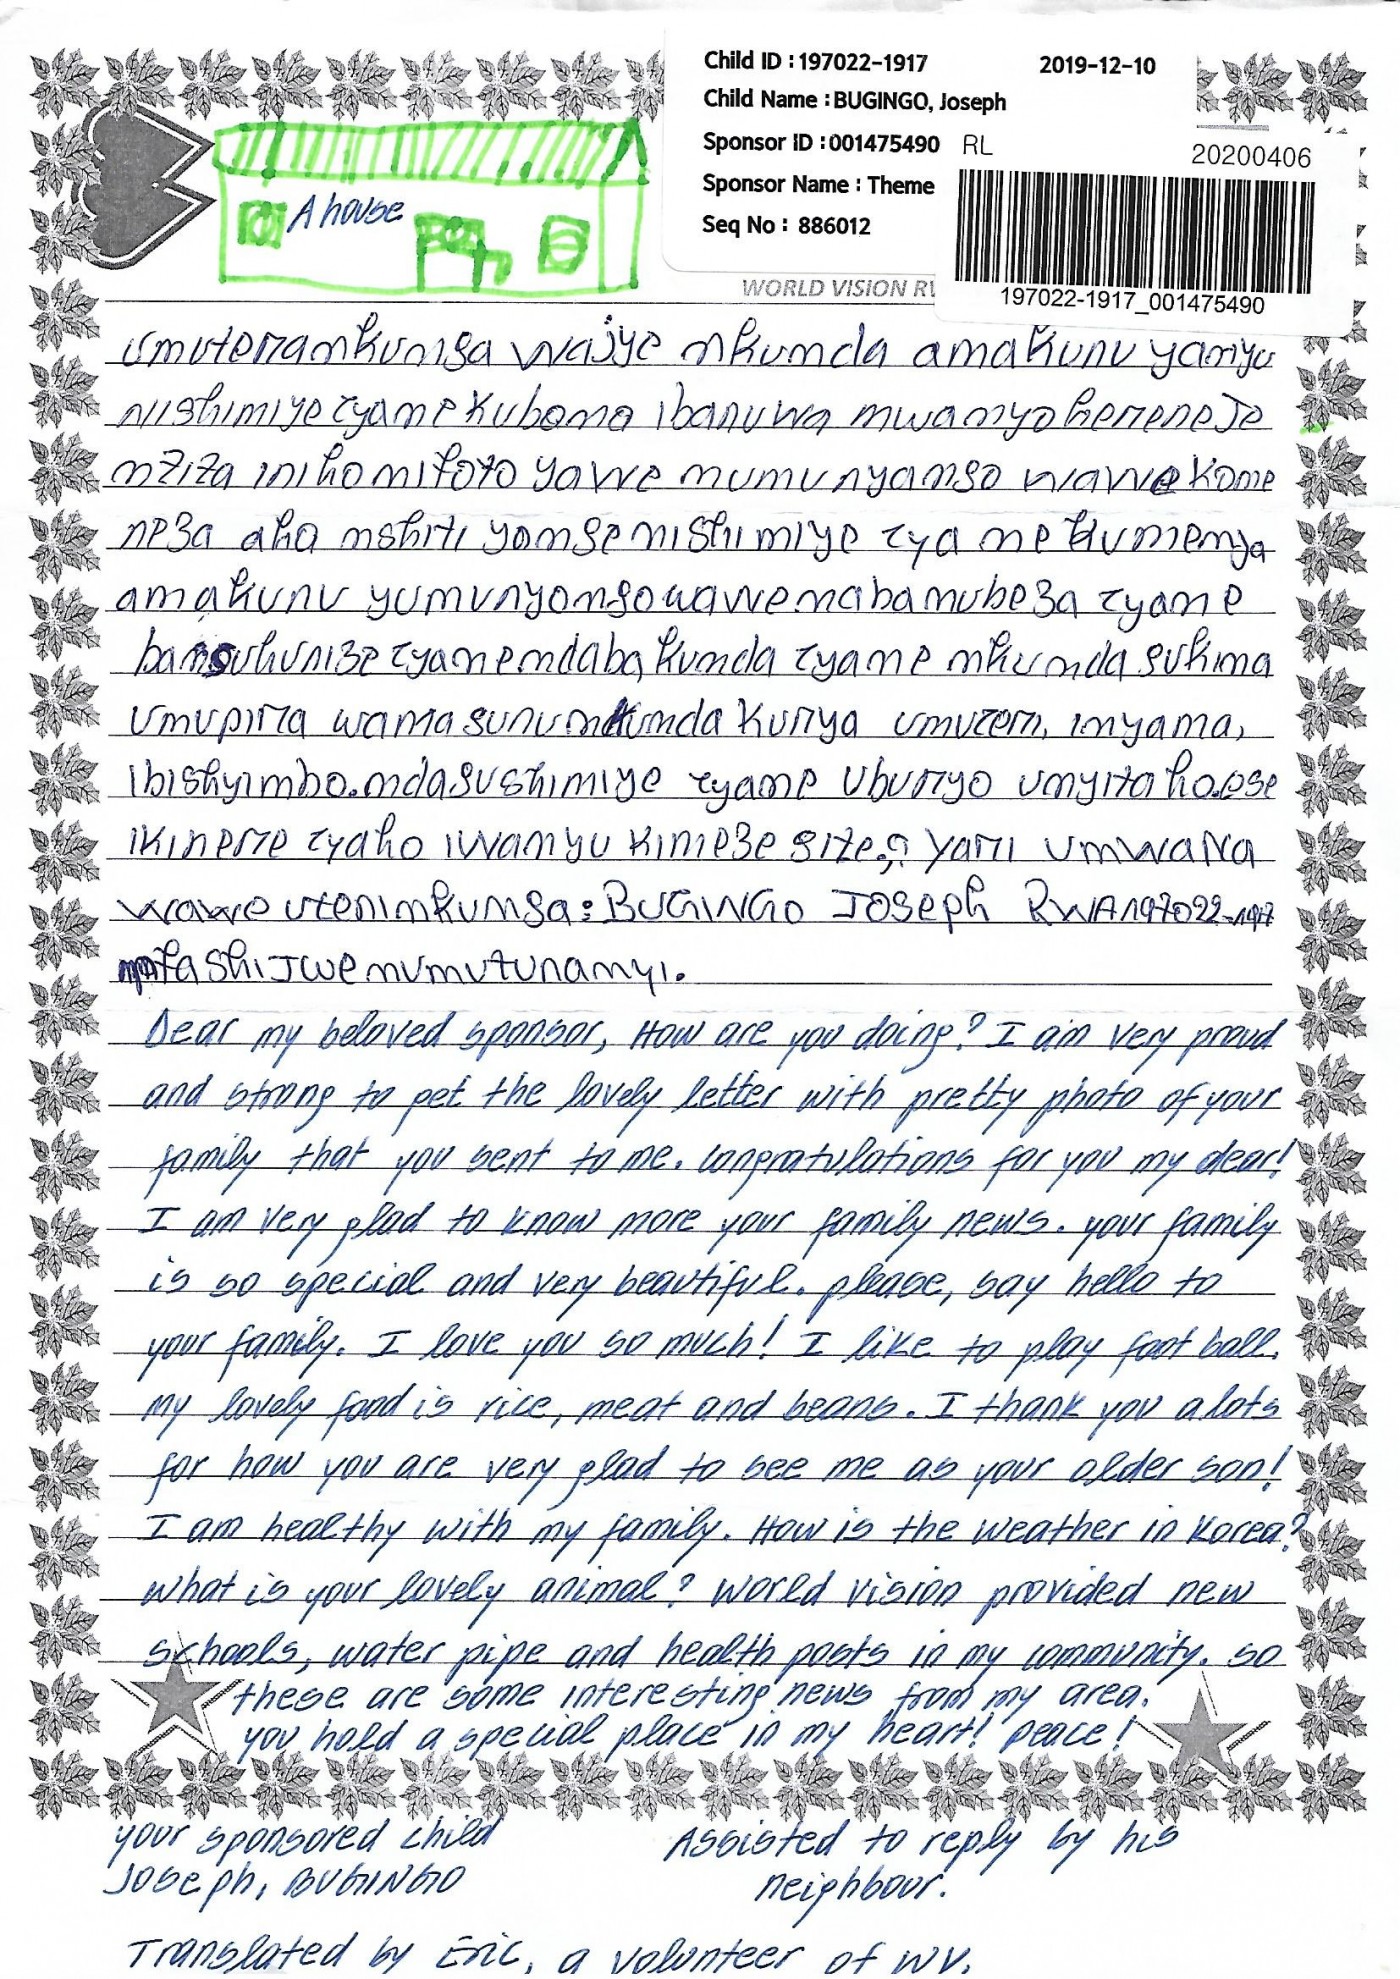 Child ID : 197022-1917 2019-12-10
Child Name : BUGINGO, Joseph
Sponsor ID : 001475490 RL
20200406
Sponsor Name : Theme
Seq No : 886012
197022-1917_001475490
A house
WORLD VISION RW
umuteramkunga wajye nkunda amakuru yanyu
niishimiye cyane kubona ibaruwa mwanyohereneje
nziza iriho mifoto yawe numuryango wawe kome
neza aha nshiti yonge nishimiye cya ne kumenya
amakuru yumuryongo wawe nabanubeza cyane
cyane ndabakunda cyane nkunda gukina
umupira wamaguru nkunda kurya umuceri, inyama,
ibishyimbo. ndagushimiye cyane uburyo unyitaho. ese
ikinere cyaho iwanyu kimeze gite.? yari umwana
wawe uterinkunga: BUGINGO JOSEPH RWA197022-1917
tashijwe numuturanyi.
Dear my beloved sponsor, How are you doing? I am very proud
and strong to get the lovely letter with pretty photo of your
family that you sent to me. congratulations for you my dear!
I am very glad to know more your family news. your family
is so special and very beautiful. please, say hello to
your family. I love you so much! I like to play foot ball.
my lovely food is rice, meat and beans. I thank you alots
for how you are very glad to see me as your older son!
I am healthy with my family. How is the weather in Korea?
what is your lovely animal? world vision provided new
schools, water pipe and health posts in my community. so
these are some interesting news from my area.
you hold a special place in my heart! peace!
your sponsored child
Joseph, BUGINGO
Assisted to reply by his
neighbour.
Translated by Eric, a volunteer of WV.